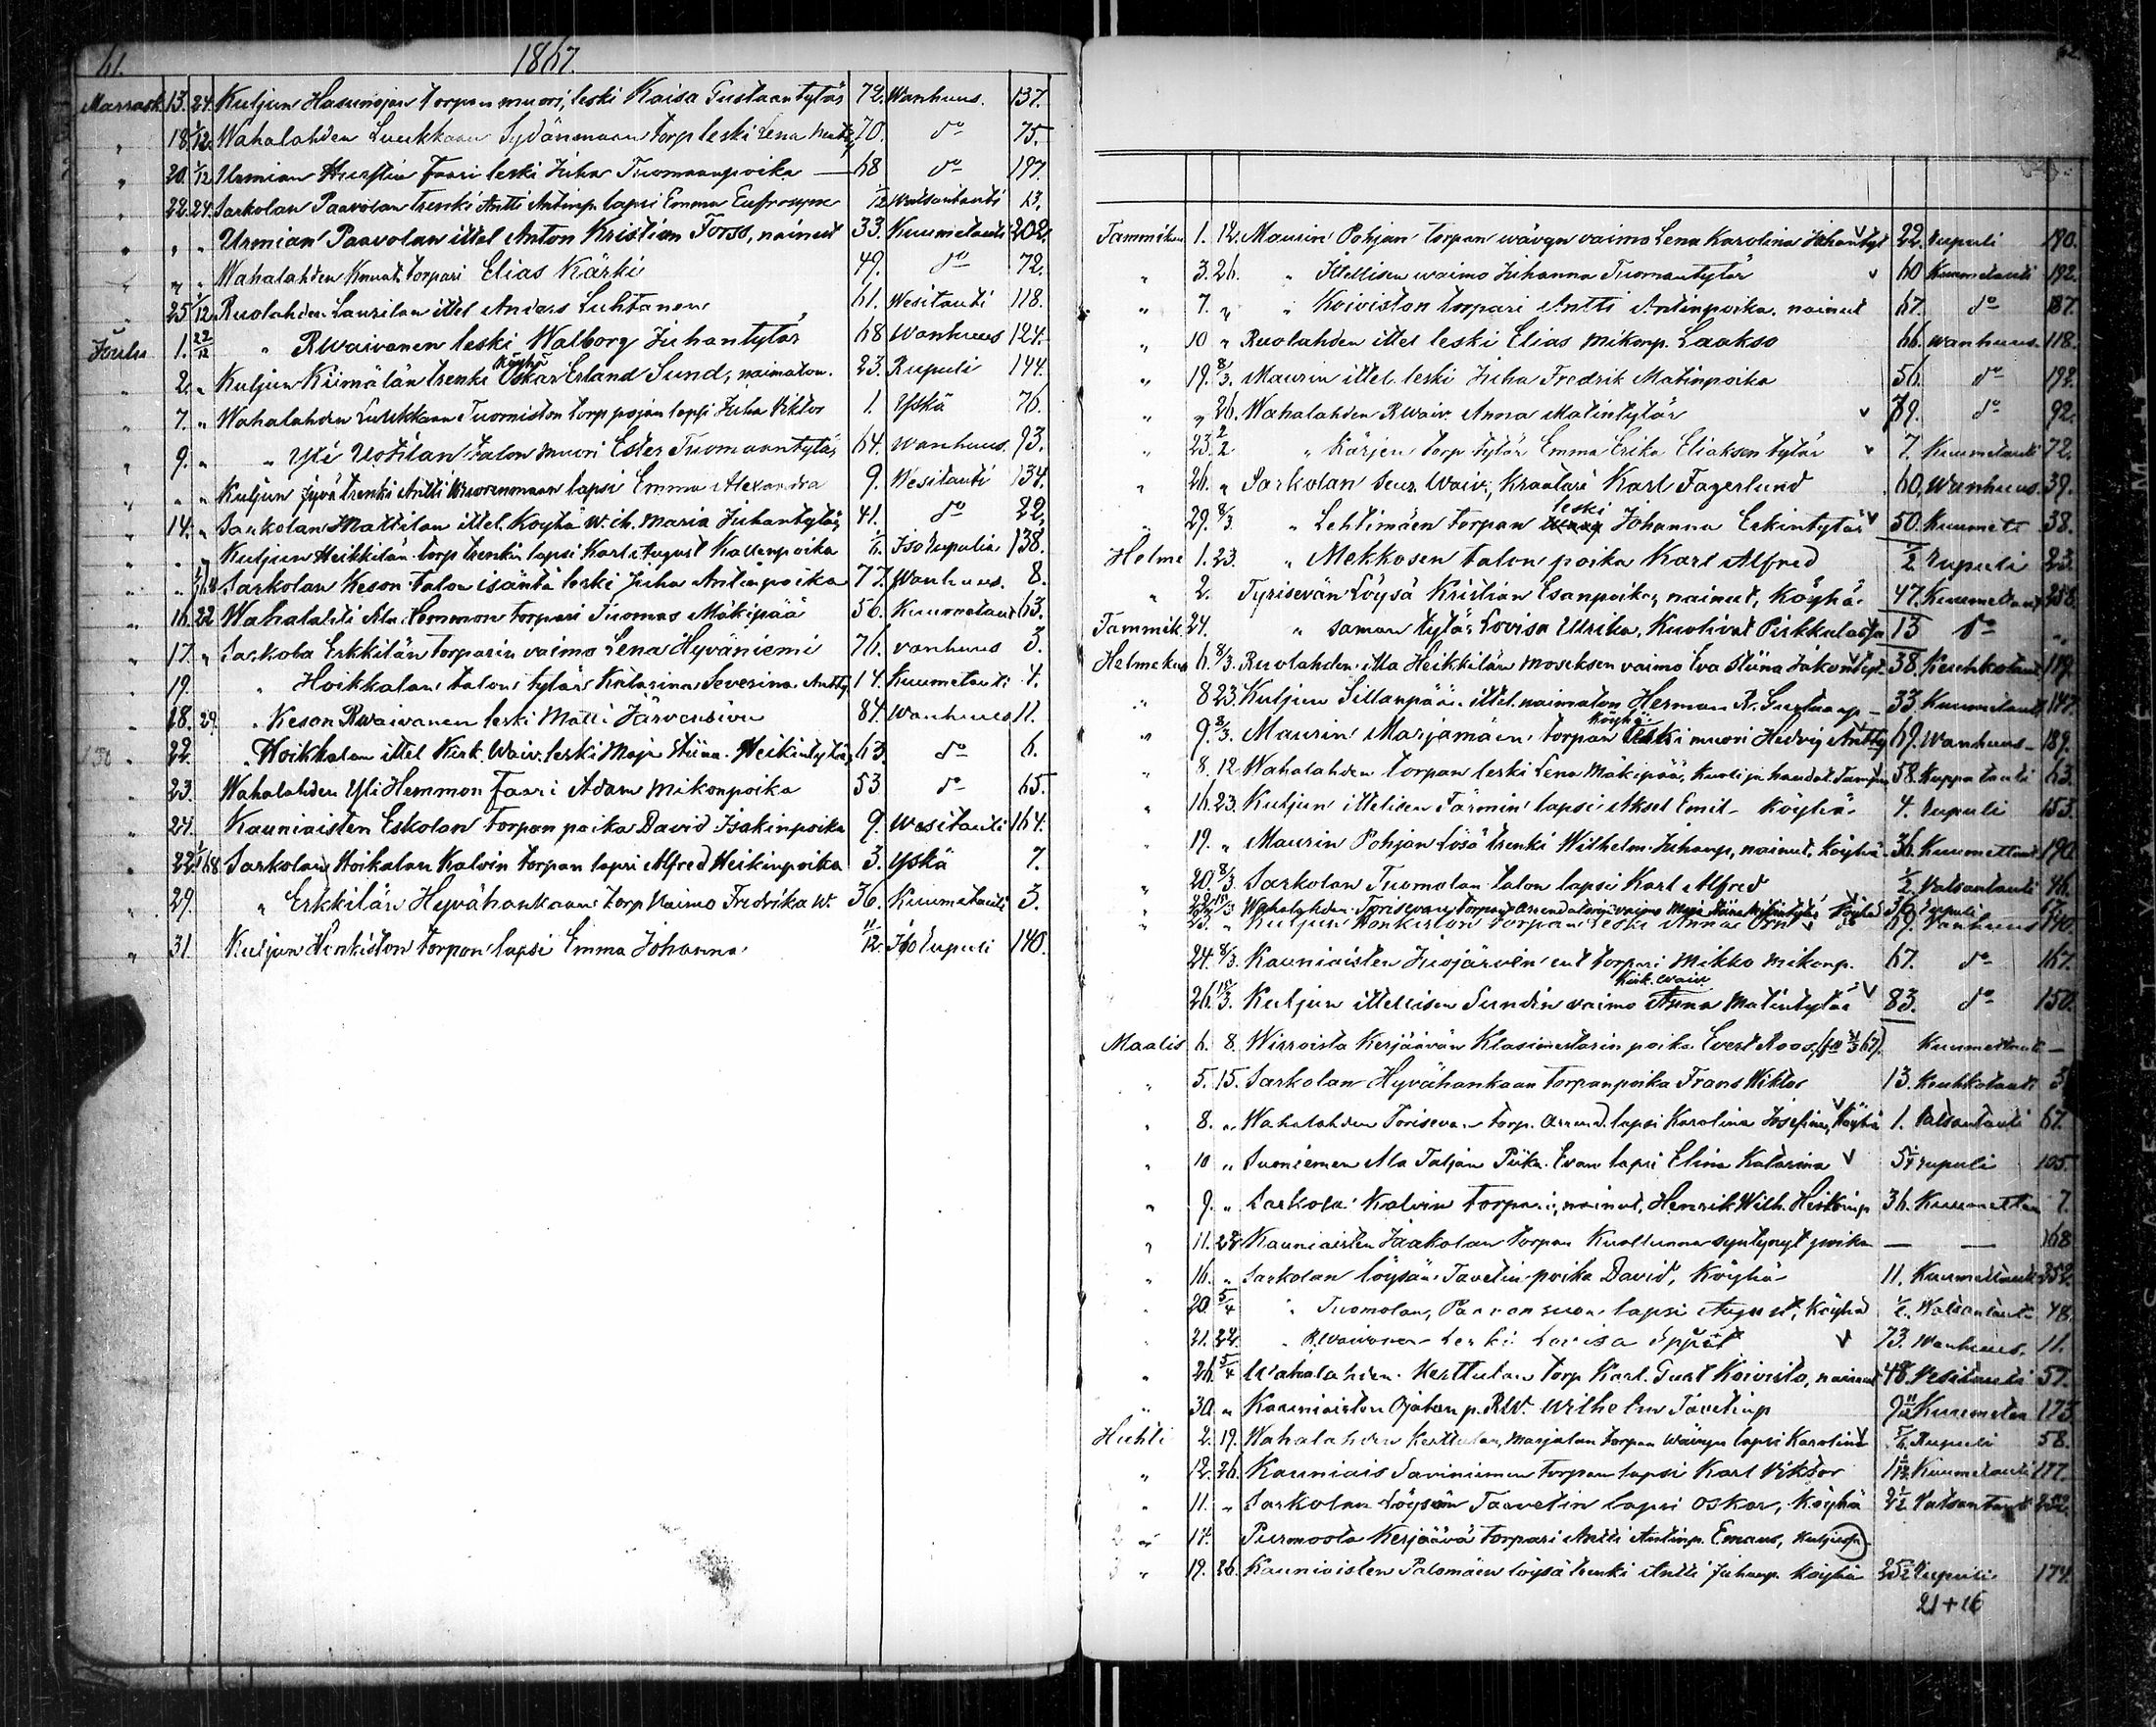 61.
1867.
Marrask. 13. 24. Kuljun Hasunojan torpan muori, leski Kaisa Gustaantytär 72. Wanhuus. 137.
" 18. 1/12 Wahalahden Luukkaan Sydänmaan torp leski Lena 70. do 75.
" 20. 1/12 Urmian Faari leski Juha Tuomaanpoika — 68 do 197.
" 22. 24. Sarkolan Paavolan trenki Antti Antinp. lapsi Emma Eufrosyne 1/12 Watsantauti 13.
" " " Urmian Paavolan ittel Anton Kristian Forss, nainut 33. Kuumetauti 202.
" " Wahalahden Knuut. torpari Elias Kärki 49. do 72.
" 25. 1/12 Ruolahden Laurilan ittel Anders Luhtanen 61. Wesitauti 118.
Joulu 1. 22/12 " Rwaivanen leski Walborg Juhantytär 68 Wanhuus 124.
" 2. " Kuljun Kiimälän trenki Köyhä Oskar Erland Sund, naimaton. 23. Rupuli 144.
" 7. " Wahalahden Luukkaan Tuomiston torp pojan lapsi Juha Viktor 1. Yskä 76.
" 9. " " Yli Uotilan talon muori Ester Tuomaantytär 64. Wanhuus. 93.
" " " Kuljun Jyvä trenki Antti lapsi Emma Alexandra 9. Wesitauti 134.
" 14. " Sarkolan Mattilan ittel. Köyhä Maria Juhantytär 41. do 22.
" " Kuljun Heikkilän torp trenkin lapsi Karl August Kallenpoika Iso rupulia 138.
" " Sarkolan Keson talon isäntä leski Juha Antinpoika 77. Wanhuus. 8.
" 16. 22 Wahalahti Ala Hemmon torpari Tuomas Mäkipää 56. Kuumetaut 63.
" 17. " Sarkola Erkkilän torparin vaimo Lena Hyväniemi 76. vanhuus 3.
" 19. " Hoikkalan talon tytär Katarina Severina Anttty. 14. Kuumetauti 4.
" 18. 29. " Keson Rwaivanen leski Matti Järvensivu 84. Wanhuus 11.
" 22. " Hoikkalan ittel Kirk. Waiv. leski Maja Stiina Heikintytär 63. do 6.
" 23. Wahalahden Yli Hemmon Faari Adam Mikonpoika 53 do 65.
" 24. Kauniaisten Eskolan Torpan poika David Isakinpoika 9. Wesitauti 164.
" 22. 1/1 68 Sarkolan Hoikalan Kalvin torpan lapsi Alfred Heikinpoika 3. Yskä 7.
" 29. " Erkkilän Hyvähankaan torp Vaimo Fredrika W. 36. Kuumetauti 3.
" 31. Kuljun Honkiston torpan lapsi Emma Johanna 11/12. Iso rupuli 140.
62.
Tammikuu 1. 12. Maurin Pohjan torpan wävyn vaimo Lena Karolina Juhantyt 22. rupuli 190.
" 3. 26. " Ittellisen waimo Juhanna Tuomantytär v 60 Kuumetauti 192.
" 7. " " Koiviston torpari Antti Antinpoika, nainut 67. do 187.
" 10 " Ruolahden ittel leski Elias Mikonp. Laakso 66. wanhuus. 118.
" 19. 8/3. Maurin ittel. leski Juha Fredrik Matinpoika 56. do 192.
" " 26. Wahalahden Rwaiv. Anna Matintytär v 79. do 92.
" 23. 2/2 " Kärjen torp tytär Emma Erika Eliaksen tytär v 7. Kuumetauti 72.
" 26. " Sarkolan Seur. Waiv., Kraatari Karl Fagerlund 60. Wanhuus. 39.
" 29. 8/3 " Lehtimäen torpan leski Johanna Erkintytär v 50. Kuumett 38.
Helme 1. 23. " Mekkosen talon poika Karl Alfred 1/2 rupuli 23.
" 2. Tyrisevän Löysä Kristian Esanpoika, nainut, Köyhä. 47. Kuumetaut 258.
Tammik. 24. " saman tytär Lovisa Ulrika, Kuolivat Pirkkalassa 13 do "
Helmekuu 6. 8/3. Ruolahden Ala Heikkilän Moseksen vaimo Eva Stiina Jakontyt 38. Keuhkotaut 119.
" 8 23. Kuljun Sillanpään ittel. naimaton Herman K. Gustaanp — 33. Kuumetauti 147.
" 9. 8/3. Maurin Marjamäen torpan Köyhä leski muori Hedvig Anttty 69. Wanhuus — 189.
" 8. 12. Wahalahden torpan leski Lena Mäkipää, Kuoli ja haudat. 58. Kuppa tauti 63.
" 16. 23. Kuljun ittelisen Färmin lapsi Aksel Emil — Köyhä 4. rupuli 153.
" 19. " Maurin Pohjan Lösä trenki Wilhelm Juhanp, nainut, Köyhä 36. Kuumettaut 190.
" 20. 8/3. Sarkolan Tuomolan talon lapsi Karl Alfred 1/2. Vatsantauti 46.
" Wahalahden Torisevan torpan arendatorin vaimo Maja Stiina Köyhä 36 rupuli 67.
" 23. " Kuljun Honkiston torpan leski Anna Örn v 69. Vanhuus 140.
24. 8/3. Kauniaisten Isojärven ent torpari Mikko Mikonp. 67. do 167.
26. 15/3. Kuljun ittellisen Sundin vaimo Kirk. waiv Anna Matintytär v 83. do 150.
Maalis 6. 8. Wirroista Kerjäävän Klasimestarin poika Evert Roos, Kuumettauti —
" 5. 15. Sarkolan Hyvähankaan torpanpoika Frans Wiktor 13. Keuhkotauti 3
" 8. " Wahalahden Torisevan torp. Arrend. lapsi Karolina Josefina, Köyhä 1. Vatsantauti 67.
" 10 " Suoniemen Ala Taljan Piika Evan lapsi Elina Katarina v rupuli 105.
" 9. " Sarkola Kalvin torpari, nainut, Henrik Wilh. Heikkinp 36. Kuumettau 7.
" 11. 22 Kauniaisten Jaakolan torpan Kuolluna syntynyt poika — — 168
" 16. " Sarkolan löysän Tavetin poika David, Köyhä 11. Kuumettauti 252.
" 20. 5/4 " Tuomolan, lapsi August, Köyhä Watsantaut 48.
" 21. 22. " Rwaivanen leski Lovisa v 73. Wanhuus. 11.
" 26. 5/4 Wahalahden Kerttulan torp Karl. Gust Koivisto, nainut 48. Vesitauti 57.
" 30. " Kauniaisten p. RW. Wilhelm Tavetinp Kuumetau 173
Huhti 2. 19. Wahalahden Kerttulan, Marjalan torpan wävyn lapsi Karolina v Rupuli 58.
" 12. 26. Kauniais Saviniemen torpan lapsi Karl Viktor Kuumetauti 177.
" 11. " Sarkolan Löysän Taavetin lapsi Oskar, Köyhä 2 1/2 Vatsantaut 252.
" 17. Purmosta Kerjäävä torpari Antti Antinp. Emaus,
" 19. 26. Kauniaisten Palomäen löysä trenki Antti Juhanp. Köyhä rupuli 174.
21 + 16